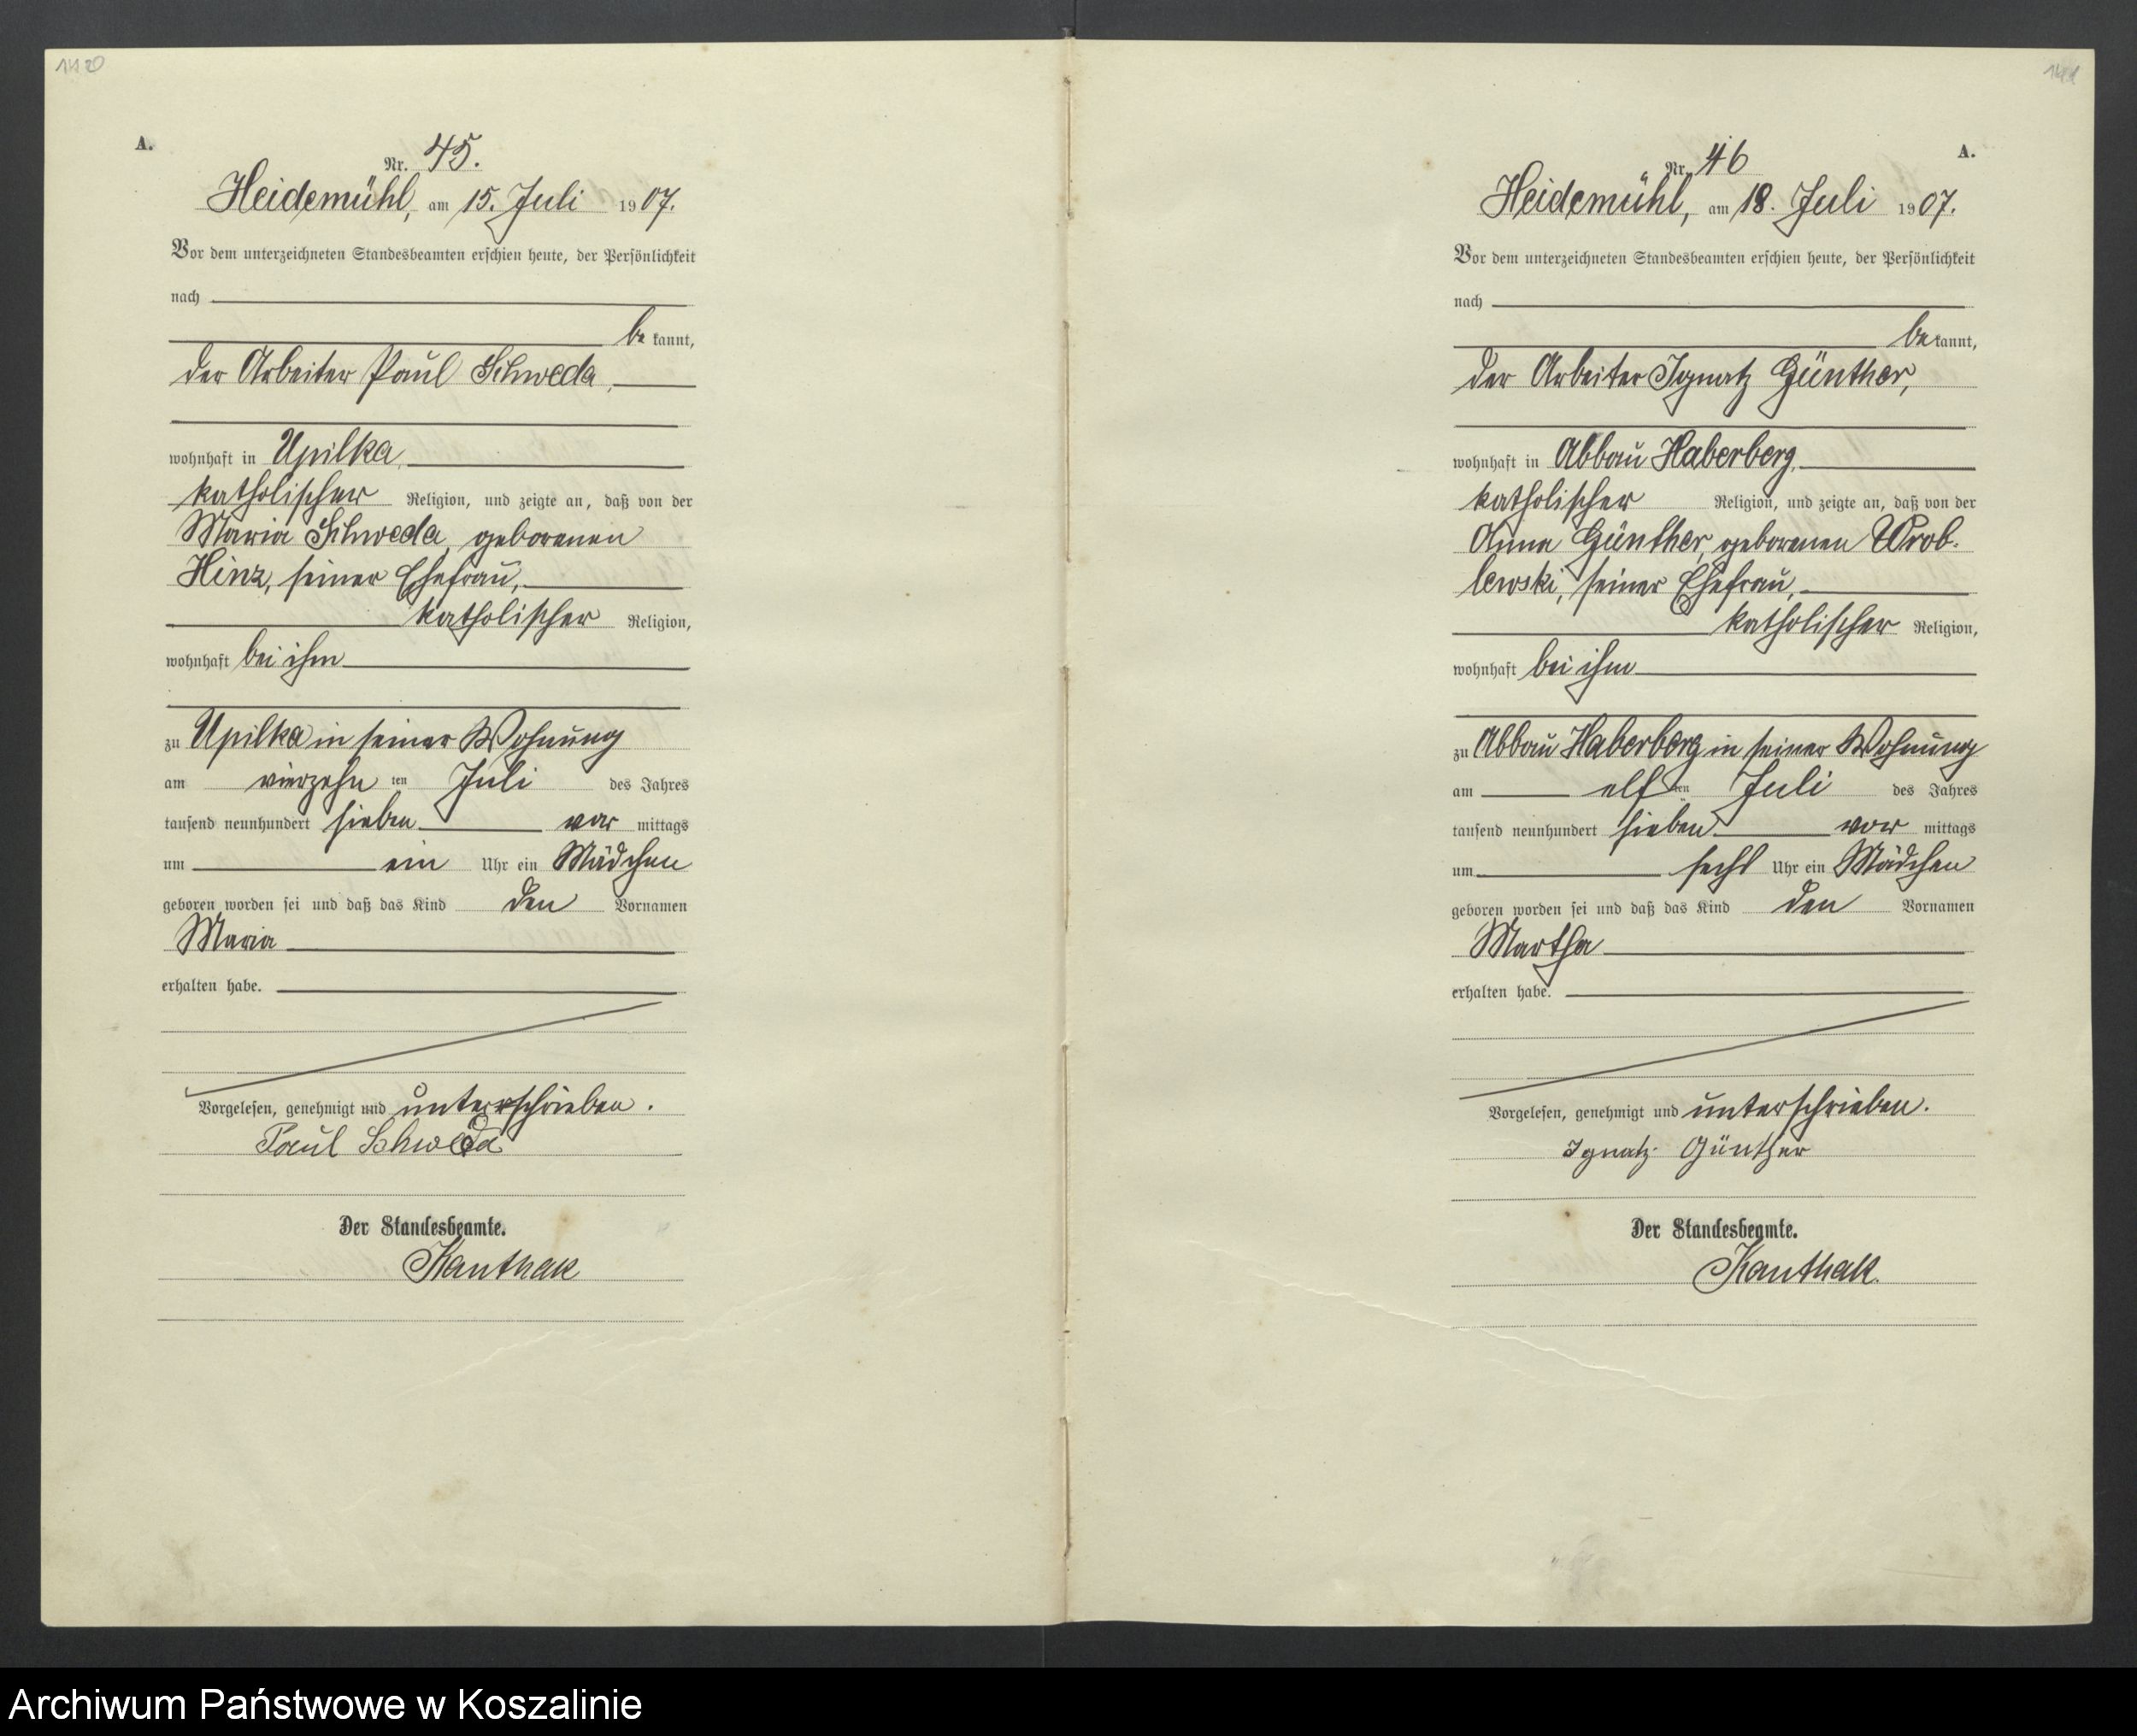 A.
Nr. 45.
Heidemühl, am 15. Juli 1907.
Vor dem unterzeichneten Standesbeamten erschien heute, der Persönlichkeit
nach
be kannt,
der Arbeiter Paul Schweda,
wohnhaft in Upilka,
katholischer Religion, und zeigte an, daß von der
Maria Schweda, geborenen
Hinz, seiner Ehefrau,
katholischer Religion,
wohnhaft bei ihm
zu Upilka in seiner Wohnung
am vierzehn ten Juli des Jahres
tausend neunhundert sieben vor mittags
um ein Uhr ein Mädchen
geboren worden sei und daß das Kind den Vornamen
Maria
erhalten habe.
Vorgelesen, genehmigt und unterschrieben.
Paul Schweda
Der Standesbeamte.
Kanthak
141
A.
Nr. 46
Heidemühl, am 18. Juli 1907.
Vor dem unterzeichneten Standesbeamten erschien heute, der Persönlichkeit
nach
be kannt,
der Arbeiter Ignatz Günther,
wohnhaft in Abbau Haberberg,
katholischer Religion, und zeigte an, daß von der
Anna Günther, geborenen Wrob-
lewski, seiner Ehefrau,
katholischer Religion,
wohnhaft bei ihm
zu Abbau Haberberg in seiner Wohnung
am elf ten Juli des Jahres
tausend neunhundert sieben vor mittags
um sechs Uhr ein Mädchen
geboren worden sei und daß das Kind den Vornamen
Martha
erhalten habe.
Vorgelesen, genehmigt und unterschrieben.
Ignatz Günther
Der Standesbeamte.
Kanthak.
Archiwum Państwowe w Koszalinie